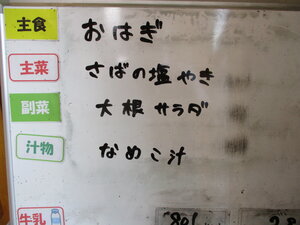 主食 おはぎ
主菜 さばの塩やき
副菜 大根サラダ
汁物 なめこ汁
牛乳